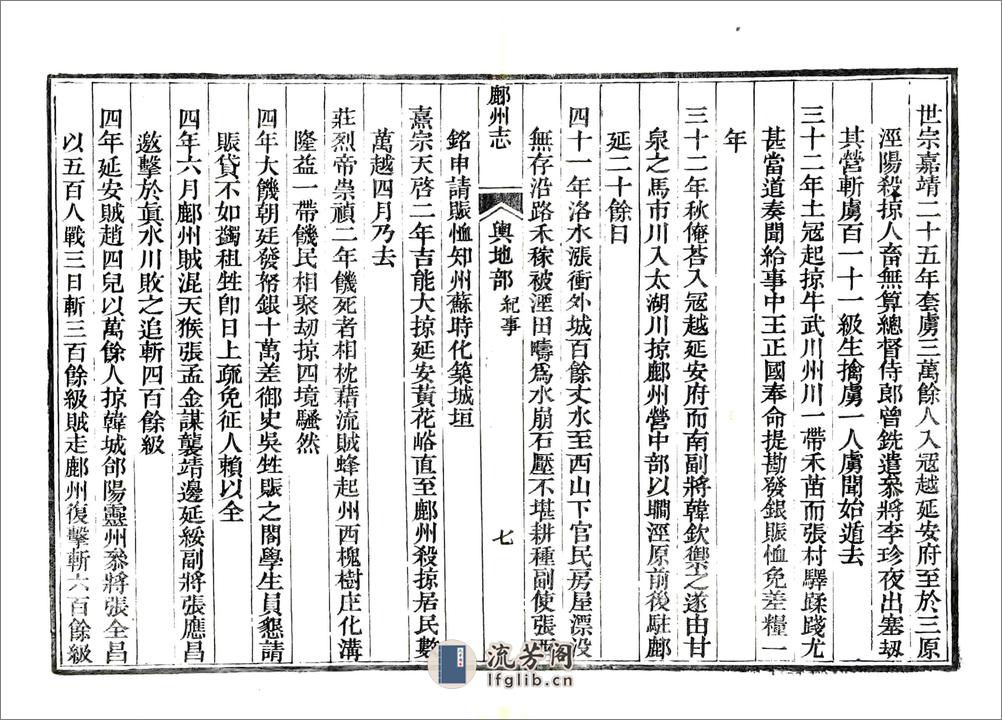 世宗嘉靖二十五年套虜三萬餘人入寇越延安府至於三原
涇陽殺掠人畜無算總督侍郎曾銑遣叅將李珍夜出塞刼
其營斬虜百一十一級生擒虜一人虜聞始遁去
三十二年土寇起掠牛武川州川一帶禾苗而張村驛蹂踐尤
甚當道奏聞給事中王正國奉命提勘發銀賑恤免差糧一
年
三十二年秋俺荅入寇越延安府而南副將韓欽禦之遂由甘
泉之馬市川入太湖川掠鄜州營中部以闚涇原前後駐鄜
延二十餘日
四十一年洛水漲衝外城百餘丈水至西山下官民房屋漂没
無存沿路禾稼被湮田疇爲水崩石壓不堪耕種副使張西
鄜州志
輿地部 紀事
七
銘申請賑恤知州蘇時化築城垣
熹宗天啓二年吉能大掠延安黃花峪直至鄜州殺掠居民數
萬越四月乃去
莊烈帝崇禎二年饑死者相枕藉流賊蜂起州西槐樹庄化溝
隆益一帶饑民相聚刼掠四境騷然
四年大饑朝廷發帑銀十萬差御史吳甡賑之闔學生員懇請
賑貸不如蠲租甡卽日上疏免征人賴以全
四年六月鄜州賊混天猴張孟金謀襲靖邊延綏副將張應昌
邀擊於眞水川敗之追斬四百餘級
四年延安賊趙四兒以萬餘人掠韓城郃陽靈州叅將張全昌
以五百人戰三日斬三百餘級賊走鄜州復擊斬六百餘級
流芳阁
lfglib.cn